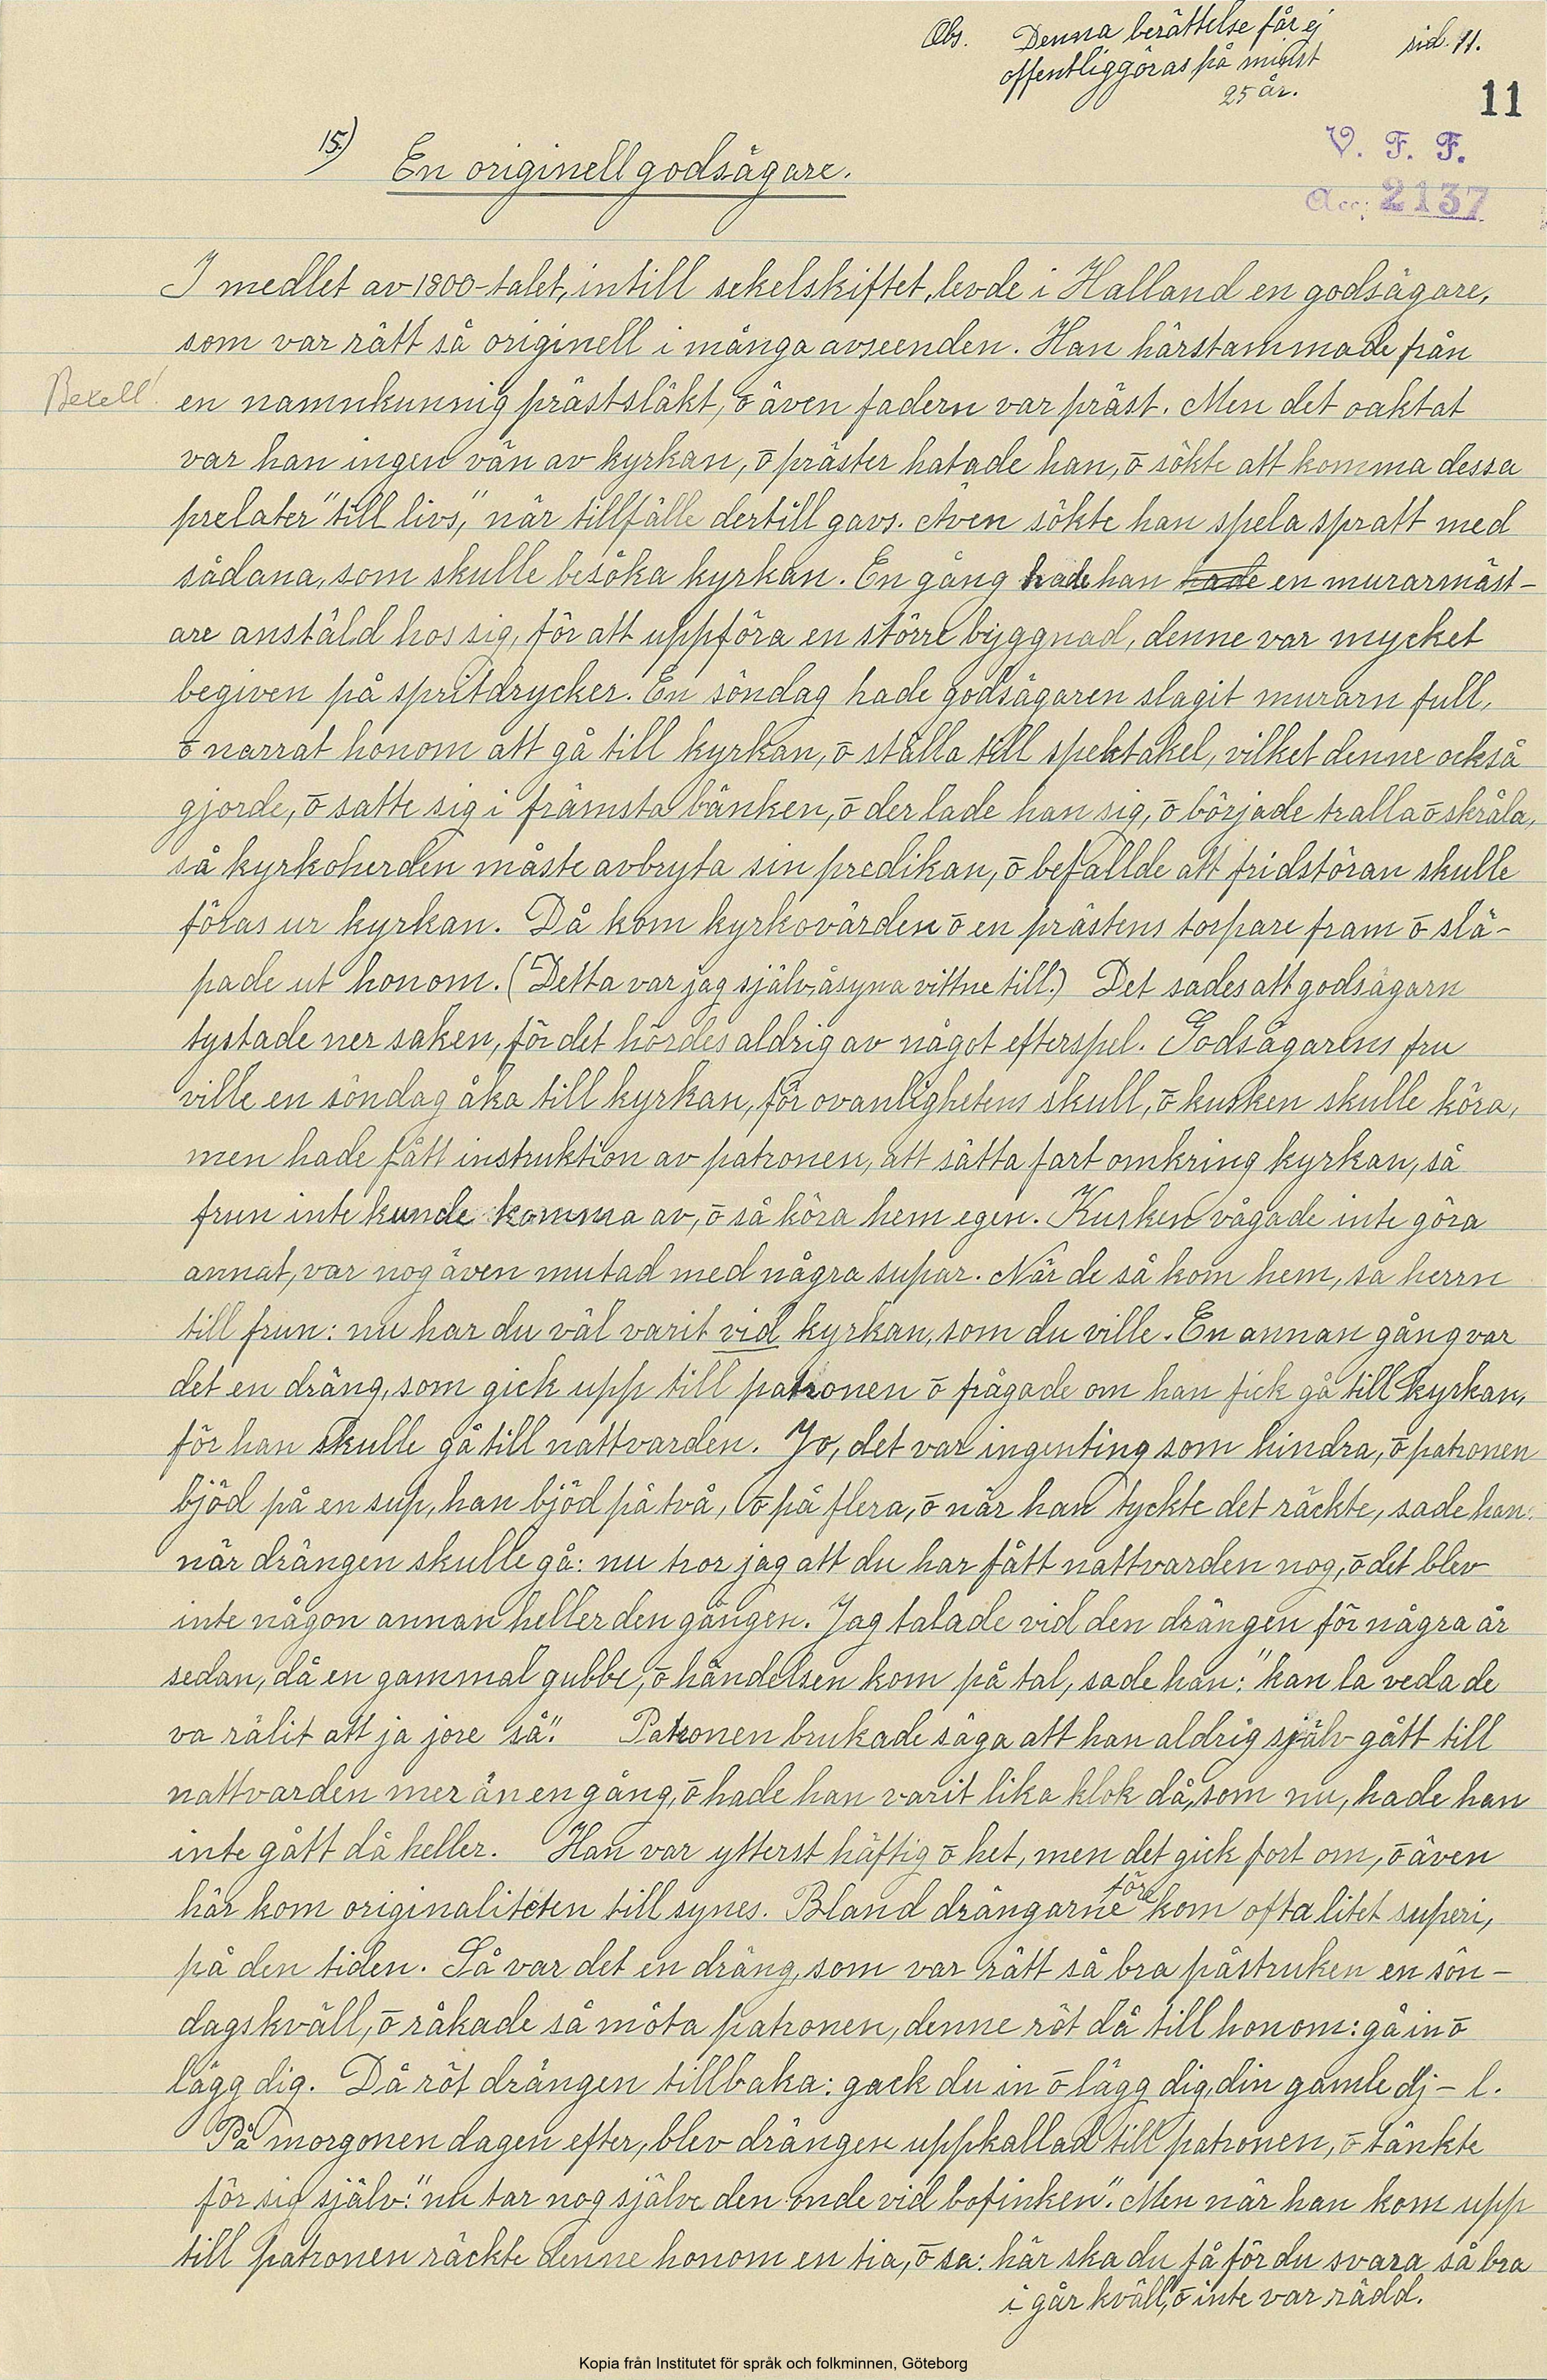 Obs. Denna berättelse får ej
offentliggöras på minst
25 år.
sid. 11.
11
V. F. F.
Acc; 2137
15.) En originell godsägare.
I medlet av 1800-talet, intill sekelskiftet, levde i Halland en godsägare,
som var rätt så originell i många avseenden. Han härstammade från
Bexell!
en namnkunnig prästsläkt, ō även fadern var präst. Men det oaktat
var han ingen vän av kyrkan, ō präster hatade han, ō sökte att komma dessa
prelater "till livs," när tillfälle dertill gavs. Även sökte han spela spratt med
sådana, som skulle besöka kyrkan. En gång hade han hade en murarmäst-
are anstäld hos sig, för att uppföra en större byggnad, denne var mycket
begiven på spritdrycker. En söndag hade godsägaren slagit murarn full,
ō narrat honom att gå till kyrkan, ō ställa till spektakel, vilket denne också
gjorde, ō satte sig i främsta bänken, ō der lade han sig, ō började tralla ō skråla,
så kyrkoherden måste avbryta sin predikan, ō befallde att fridstöran skulle
föras ur kyrkan. Då kom kyrkovärden ō en prästens torpare fram ō slä-
pade ut honom. (Detta var jag själv åsyna vittne till.) Det sades att godsägarn
tystade ner saken, för det hördes aldrig av något efterspel. Godsägarens fru
ville en söndag åka till kyrkan, för ovanlighetens skull, ō kusken skulle köra,
men hade fått instruktion av patronen, att sätta fart omkring kyrkan, så
frun inte kunde komma av, ō så köra hem egen. Kusken vågade inte göra
annat, var nog även mutad med några supar. När de så kom hem, sa herrn
till frun: nu har du väl varit vid kyrkan, som du ville. En annan gång var
det en dräng, som gick upp till patronen ō frågade om han fick gå till kyrkan,
för han skulle gå till nattvarden. Jo, det var ingenting som hindra, ō patronen
bjöd på en sup, han bjöd på två, ō på flera, ō när han tyckte det räckte, sade han:
när drängen skulle gå: nu tror jag att du har fått nattvarden nog, ō det blev
inte någon annan heller den gången. Jag talade vid den drängen för några år
sedan, då en gammal gubbe, ō händelsen kom på tal, sade han: "kan la veda de
va rälit att ja jore så". Patronen brukade säga att han aldrig själv gått till
nattvarden mer än en gång, ō hade han varit lika klok då, som nu, hade han
inte gått då heller. Han var ytterst häftig ō het, men det gick fort om, ō även
här kom originaliteten till synes. Bland drängarne före kom ofta litet superi,
på den tiden. Så var det en dräng, som var rätt så bra påstruken en sön-
dagskväll, ō råkade så möta patronen, denne röt då till honom: gå in ō
lägg dig. Då röt drängen tillbaka: gack du in ō lägg dig, din gamle dj-l.
På morgonen dagen efter, blev drängen uppkallad till patronen, ō tänkte
för sig själv: "nu tar nog själve den onde vid bofinken". Men när han kom upp
till patronen räckte denne honom en tia, ō sa: här ska du få för du svara så bra
i går kväll, ō inte var rädd.
Kopia från Institutet för språk och folkminnen, Göteborg